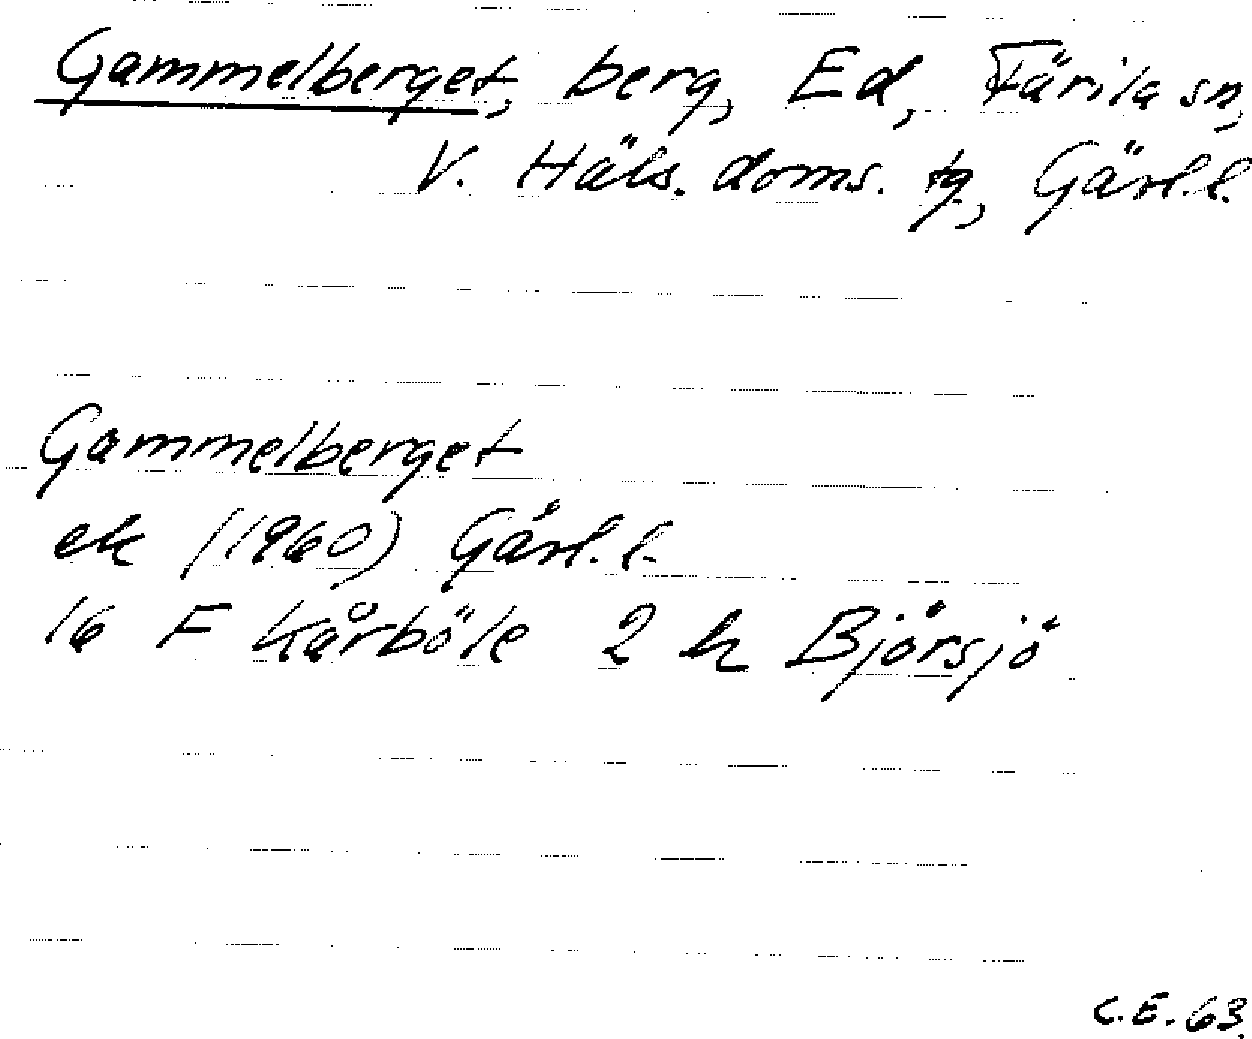 Gammelberget, berg, Ed, Färila sn,
V. Häls. doms. tg, Gävl.l.
Gammelberget
ek (1960) Gävl.l.
16 F Kårböle 2 h Björsjö
C.E. 63.